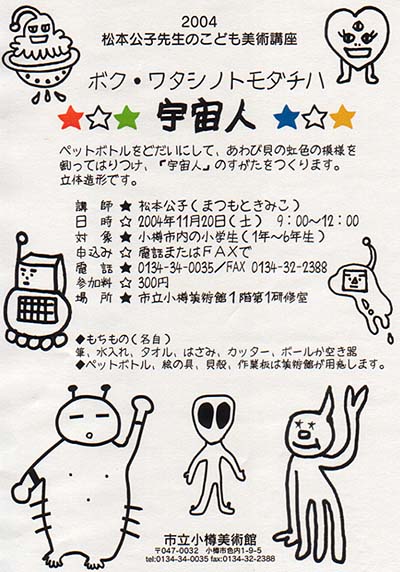 2004
松本公子先生のこども美術講座
ボク・ワタシノトモダチハ
★☆★ 宇宙人 ★☆★
ペットボトルをどだいにして、あわび貝の虹色の模様を
割ってはりつけ、『宇宙人』のすがたをつくります。
立体造形です。
講師★松本公子(まつもときみこ)
日時☆2004年11月20日(土) 9:00〜12:00
対象★小樽市内の小学生(1年〜6年生)
申込み☆電話またはFAXで
電話★0134-34-0035/FAX 0134-32-2388
参加料☆300円
場所★市立小樽美術館1階第1研修室
◆もちもの(各自)
筆、水入れ、タオル、はさみ、カッター、ボールか空き器
◆ペットボトル、絵の具、貝殻、作業板は美術館が用意します。
市立小樽美術館
〒047-0032 小樽市色内1-9-5
tel:0134-34-0035 fax:0134-32-2388